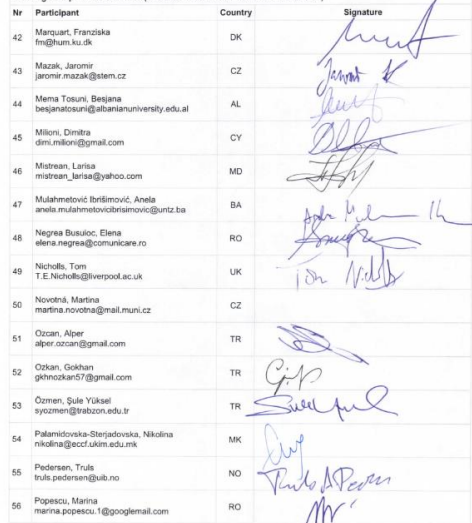 Nr Participant Country Signature
42 Marquart, Franziska DK
fm@hum.ku.dk
43 Mazak, Jaromir CZ
jaromir.mazak@stem.cz
44 Mema Tosuni, Besjana AL
besjanatosuni@albanianuniversity.edu.al
45 Milioni, Dimitra CY
dimi.milioni@gmail.com
46 Mistrean, Larisa MD
mistrean_larisa@yahoo.com
47 Mulahmetović Ibrišimović, Anela BA
anela.mulahmetovicibrisimovic@untz.ba
48 Negrea Busuioc, Elena RO
elena.negrea@comunicare.ro
49 Nicholls, Tom UK Tom Nicholls
T.E.Nicholls@liverpool.ac.uk
50 Novotná, Martina CZ
martina.novotna@mail.muni.cz
51 Ozcan, Alper TR
alper.ozcan@gmail.com
52 Ozkan, Gokhan TR
gkhnozkan57@gmail.com
53 Özmen, Şule Yüksel TR
syozmen@trabzon.edu.tr
54 Palamidovska-Sterjadovska, Nikolina MK
nikolina@eccf.ukim.edu.mk
55 Pedersen, Truls NO
truls.pedersen@uib.no
56 Popescu, Marina RO
marina.popescu.1@googlemail.com